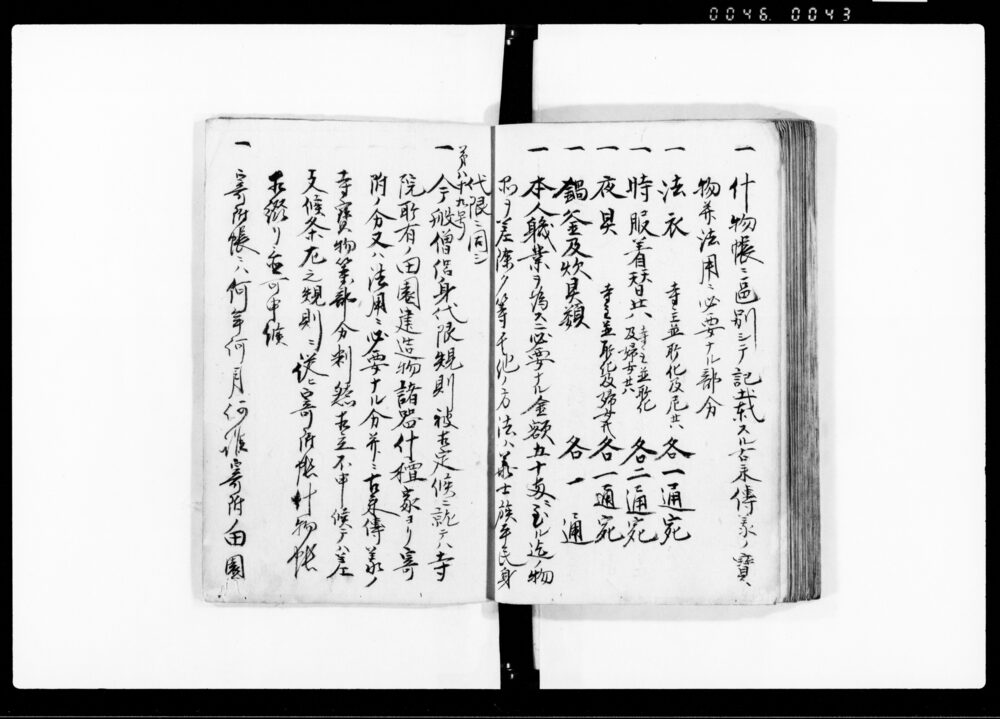 0046. 0043
一 什物帳ニ區別シテ記載スル古来傳来ノ寶
物并法用ニ必要ナル部分
一 法衣 寺主並所化及尼共 各一通宛
一 時服着替共 寺主並所化及婦女共 各二通宛
一 夜具 寺主並所化及婦女共 各一通宛
一 鍋釜及炊具類 各一通
一 本人職業ヲ為スニ必要ナル金額五十両ニ至ル迄ノ物
品ヲ差除ク等其他ノ方法ハ華士族平民身
代限ニ同シ
第八十九号
一 今般僧侶身代限規則被相定候ニ就テハ寺
院所有ノ田園建造物諸器什檀家ヨリ寄
附ノ分又ハ法用ニ必要ナル分并ニ古来傳来ノ
寺寶物等部分判然相立不申候テハ差
支候条左之規則ニ従ヒ寄附帳什物帳
相綴リ置可申候
一 寄附帳ニハ何年何月何誰寄附ノ田園